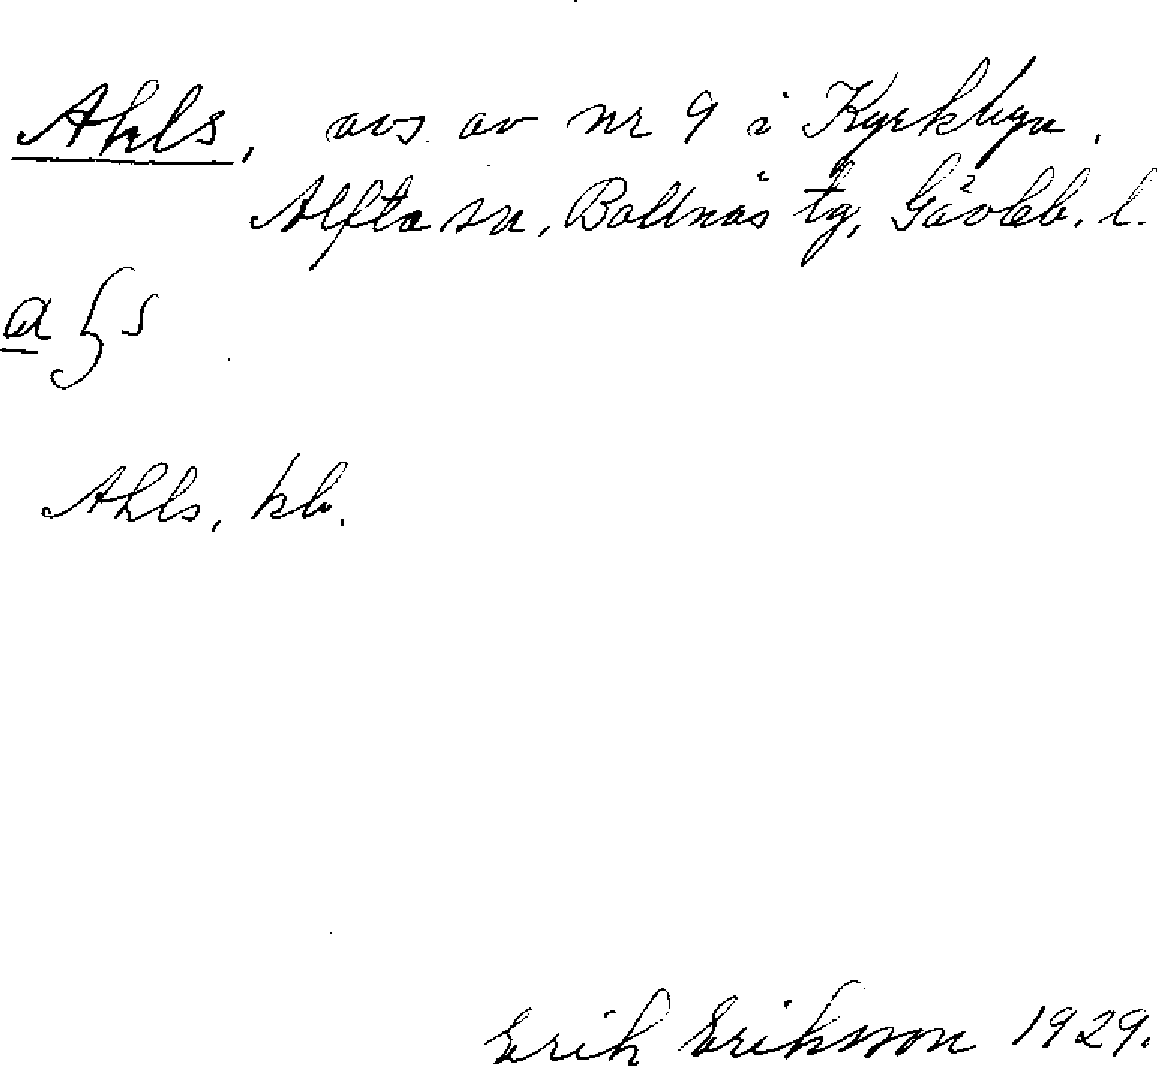 Ahls, avs. av nr 9 i Kyrkbyn,
Alfta sn, Bollnäs tg, Gävleb. l.
Ahls, kb.
Erik Eriksson 1929.